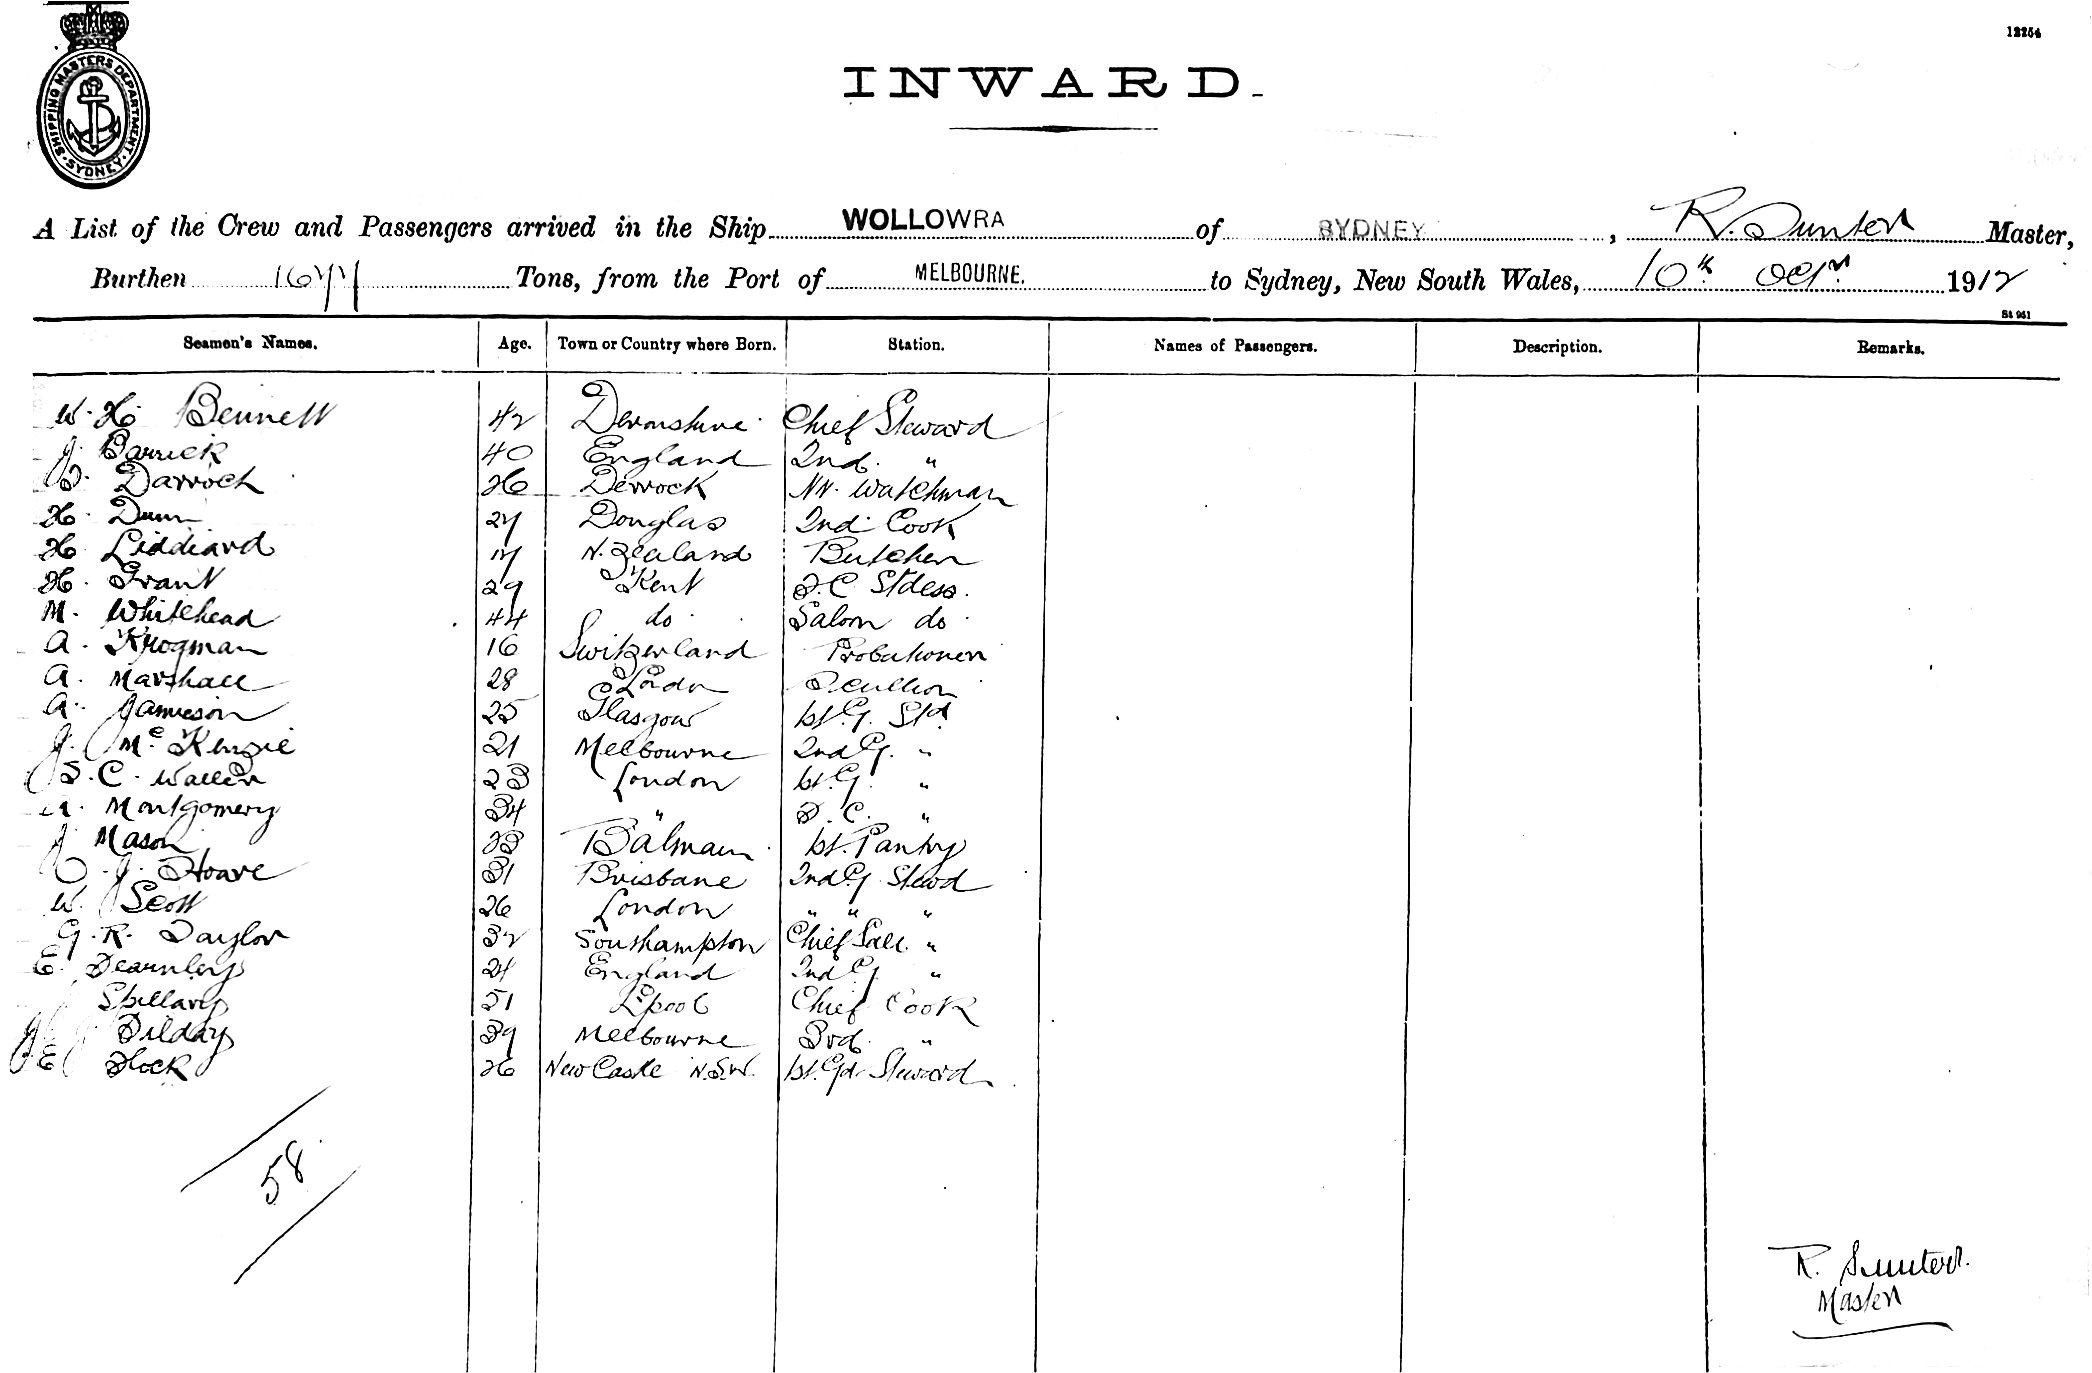 12254
SHIPPING MASTERS DEPARTMENT · SYDNEY ·
INWARD.
A List of the Crew and Passengers arrived in the Ship WOLLOWRA of SYDNEY, R. Sunter Master,
Burthen 1677 Tons, from the Port of MELBOURNE. to Sydney, New South Wales, 10th Octr 1912
St 951
Seamen's Names. Age. Town or Country where Born. Station. Names of Passengers. Description. Remarks.
W. H. Bennett 42 Devonshire Chief Steward
J. Barrick 40 England 2nd "
D. Darroch 26 Derrock Nt. Watchman
H. Dunn 27 Douglas 2nd Cook
H. Liddiard 17 N. Zealand Butcher
H. Grant 29 Kent F.C Stdess.
M. Whitehead 44 do Saloon do
A. Krogman 16 Switzerland Probationer
A. Marshall 28 London Scullion
A. Jamieson 25 Glasgow 1st. G. Std
J. McKenzie 21 Melbourne 2nd G. "
S. C. Waller 23 London 1st. G. "
A. Montgomery 34 " F. C. "
J. Mason 33 Balmain 1st. Pantry
J. Hoare 31 Brisbane 2nd G Stewd
W. Scott 26 London " " "
G. R. Taylor 32 Southampton Chief Sal. "
E. Dearnley 24 England 2nd G "
Spillary 51 L'pool Chief Cook
J. Dilday 39 Melbourne 3rd. "
E Flock 26 New Castle N.S.W. 1st. Gd. Steward
58
R. Sunter.
Master